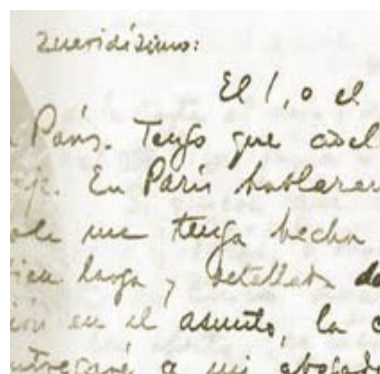 Queridísimo:
El 1, o el
París. Tengo que adel
je. En París hablarem
me tenga hecha
ien larga y detallada de
ión en el asunto, la c
ntregaré a mi abogad